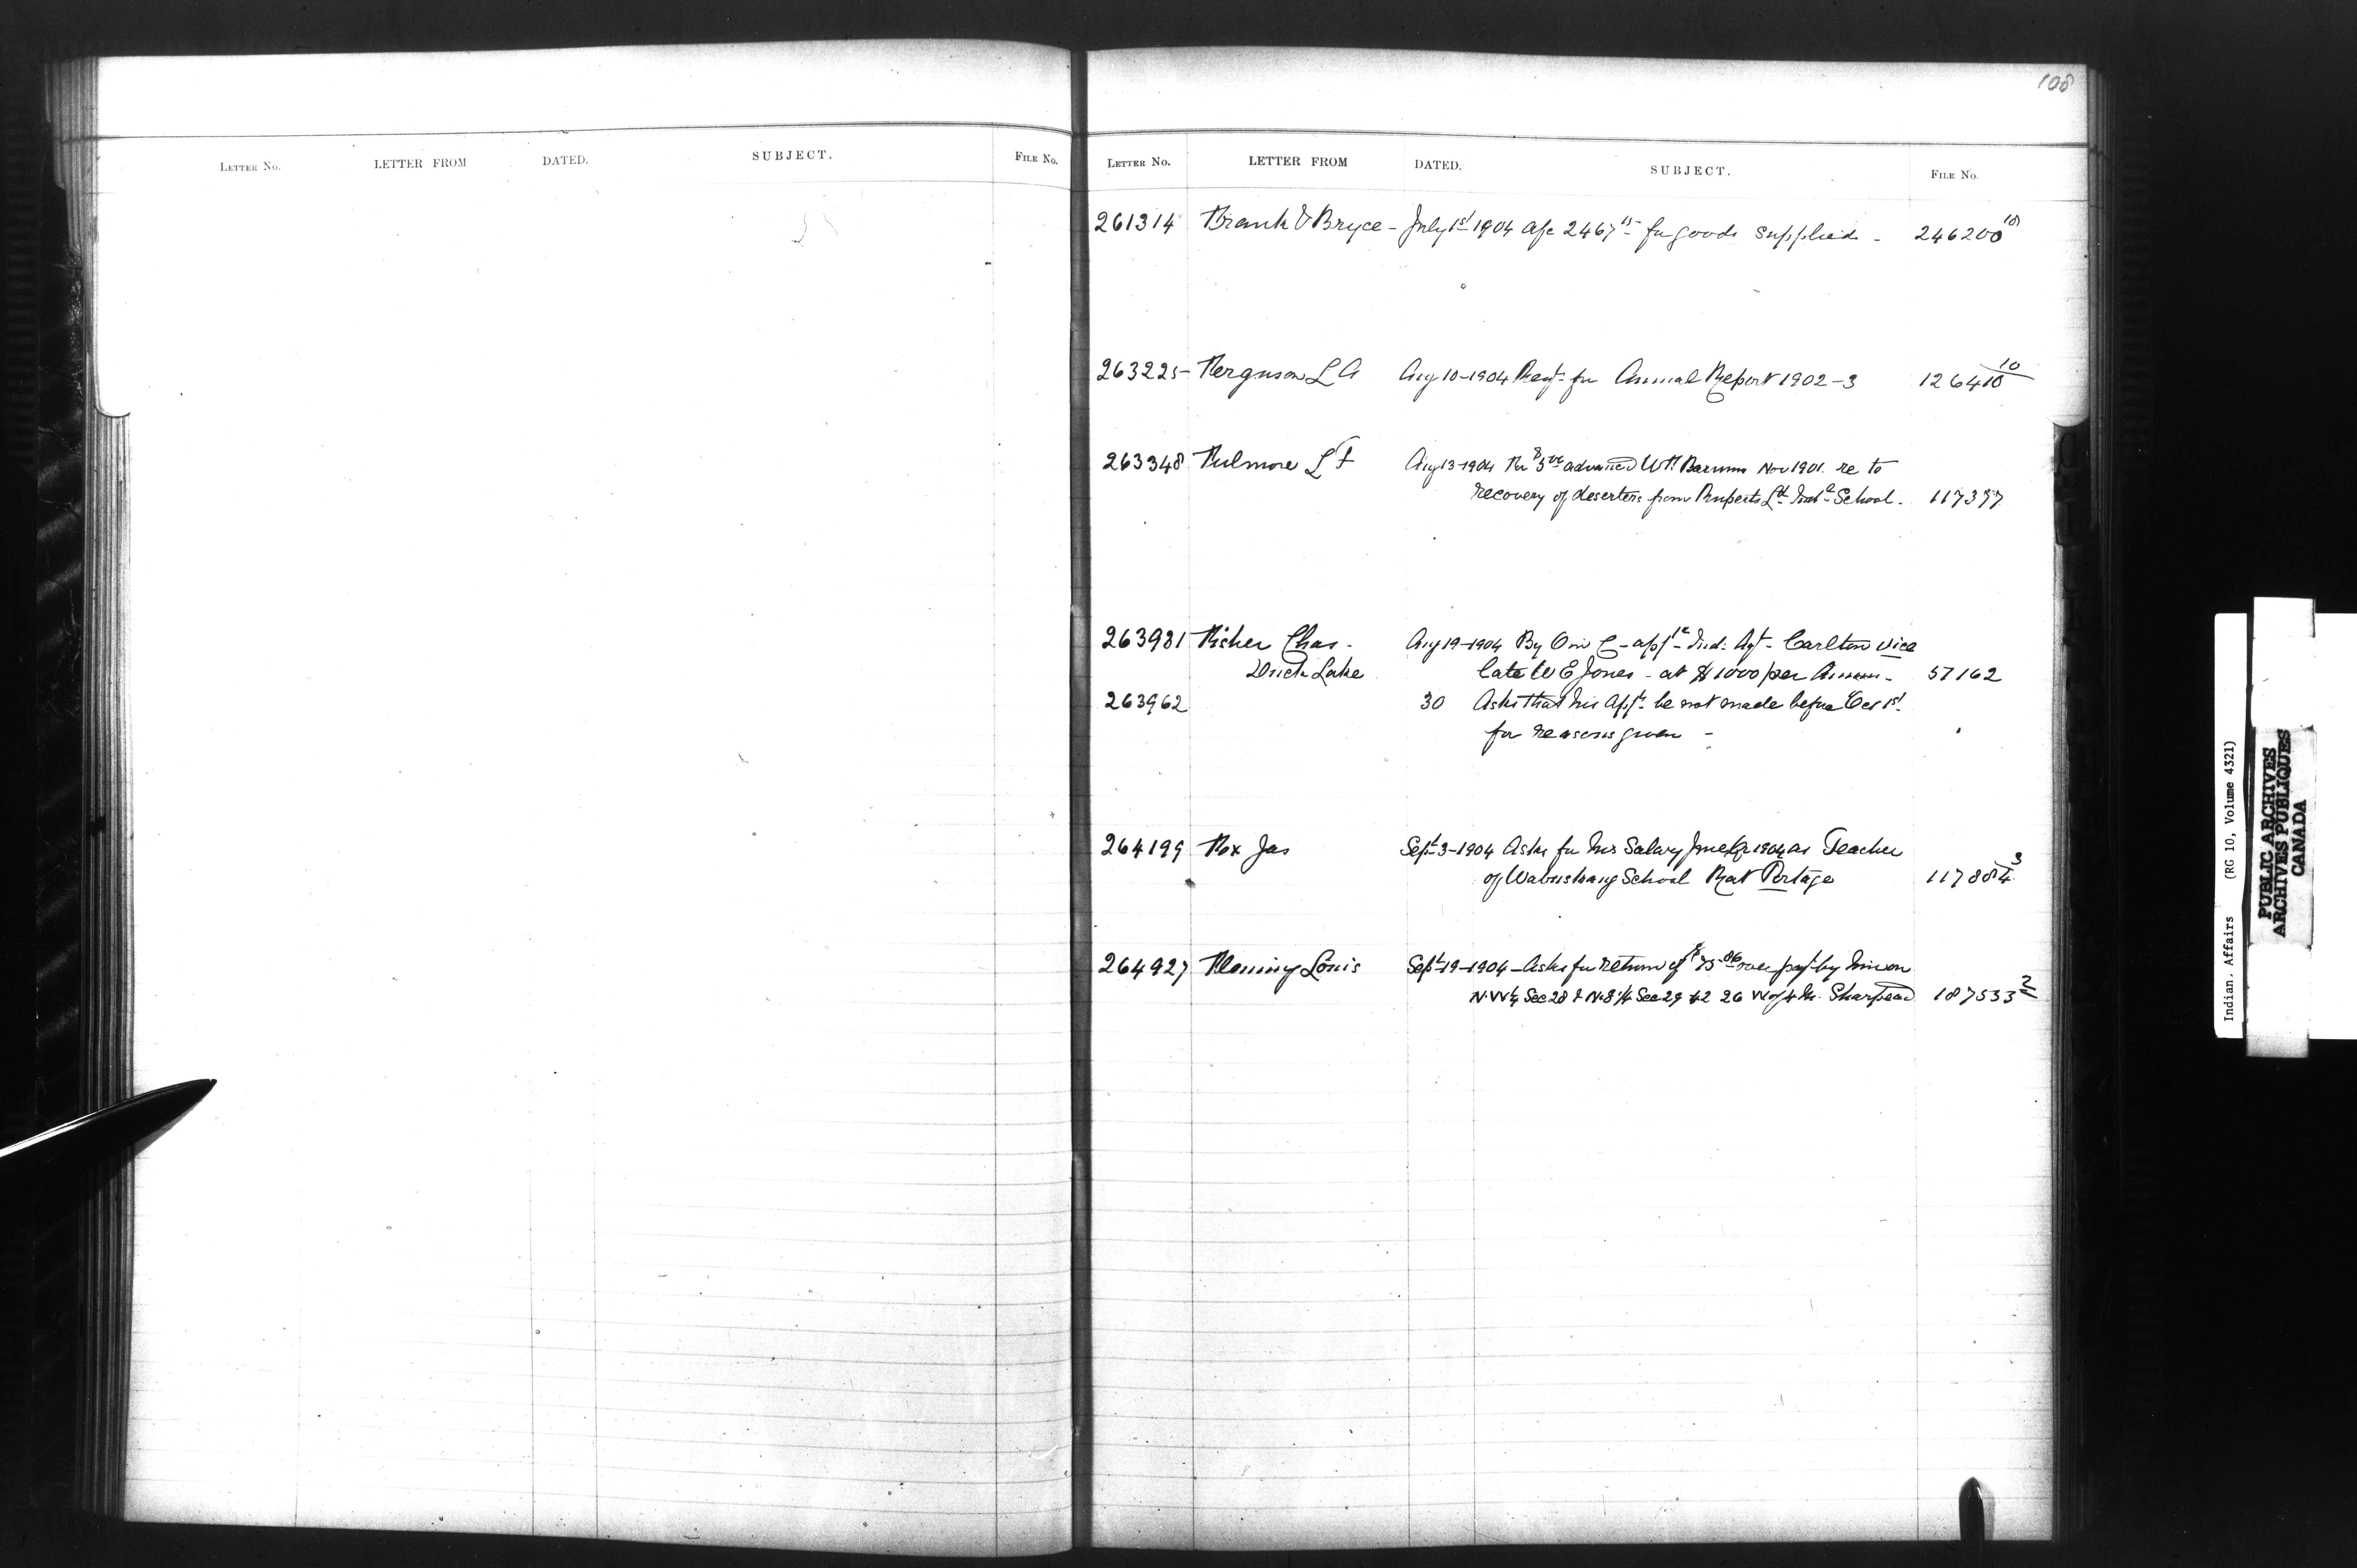 108
LETTER NO. LETTER FROM DATED. SUBJECT. FILE NO.
LETTER NO. LETTER FROM DATED. SUBJECT. FILE NO.
261314 Frank & Bryce - July 1st 1904 a/c 2467 15 for goods supplied - 246200 10
263225 Ferguson L A Aug 10-1904 Reqt for Annual Report 1902-3 126410 10
263348 Fulmore L F Aug 13-1904 For $5 00 advanced Wm Barnum Nov 1901. re to
recovery of deserters from Ruperts Ld Indl School. 117377
263981 Fisher Chas. Aug 19-1904 By O in C - apptd Ind. Agt - Carlton vice
Duck Lake late W E Jones - at $1000 per Annum - 57162
263962 30 Asks that his appt be not made before Oct 1st.
for reasons given -
264199 Fox Jas Sept 3-1904 Asks for his Salary June Qr 1904 as Teacher
of Wabuskang School Rat Portage 117884 3
264927 Fleming Louis Sept 19-1904 - Asks for return of overpayt by him on
N.W 1/4 Sec 28 & N.E 1/4 Sec 29 42 26 W of 4 M. Sharphead 187533 2
Indian. Affairs (RG 10, Volume 4321)
PUBLIC ARCHIVES
ARCHIVES PUBLIQUES
CANADA